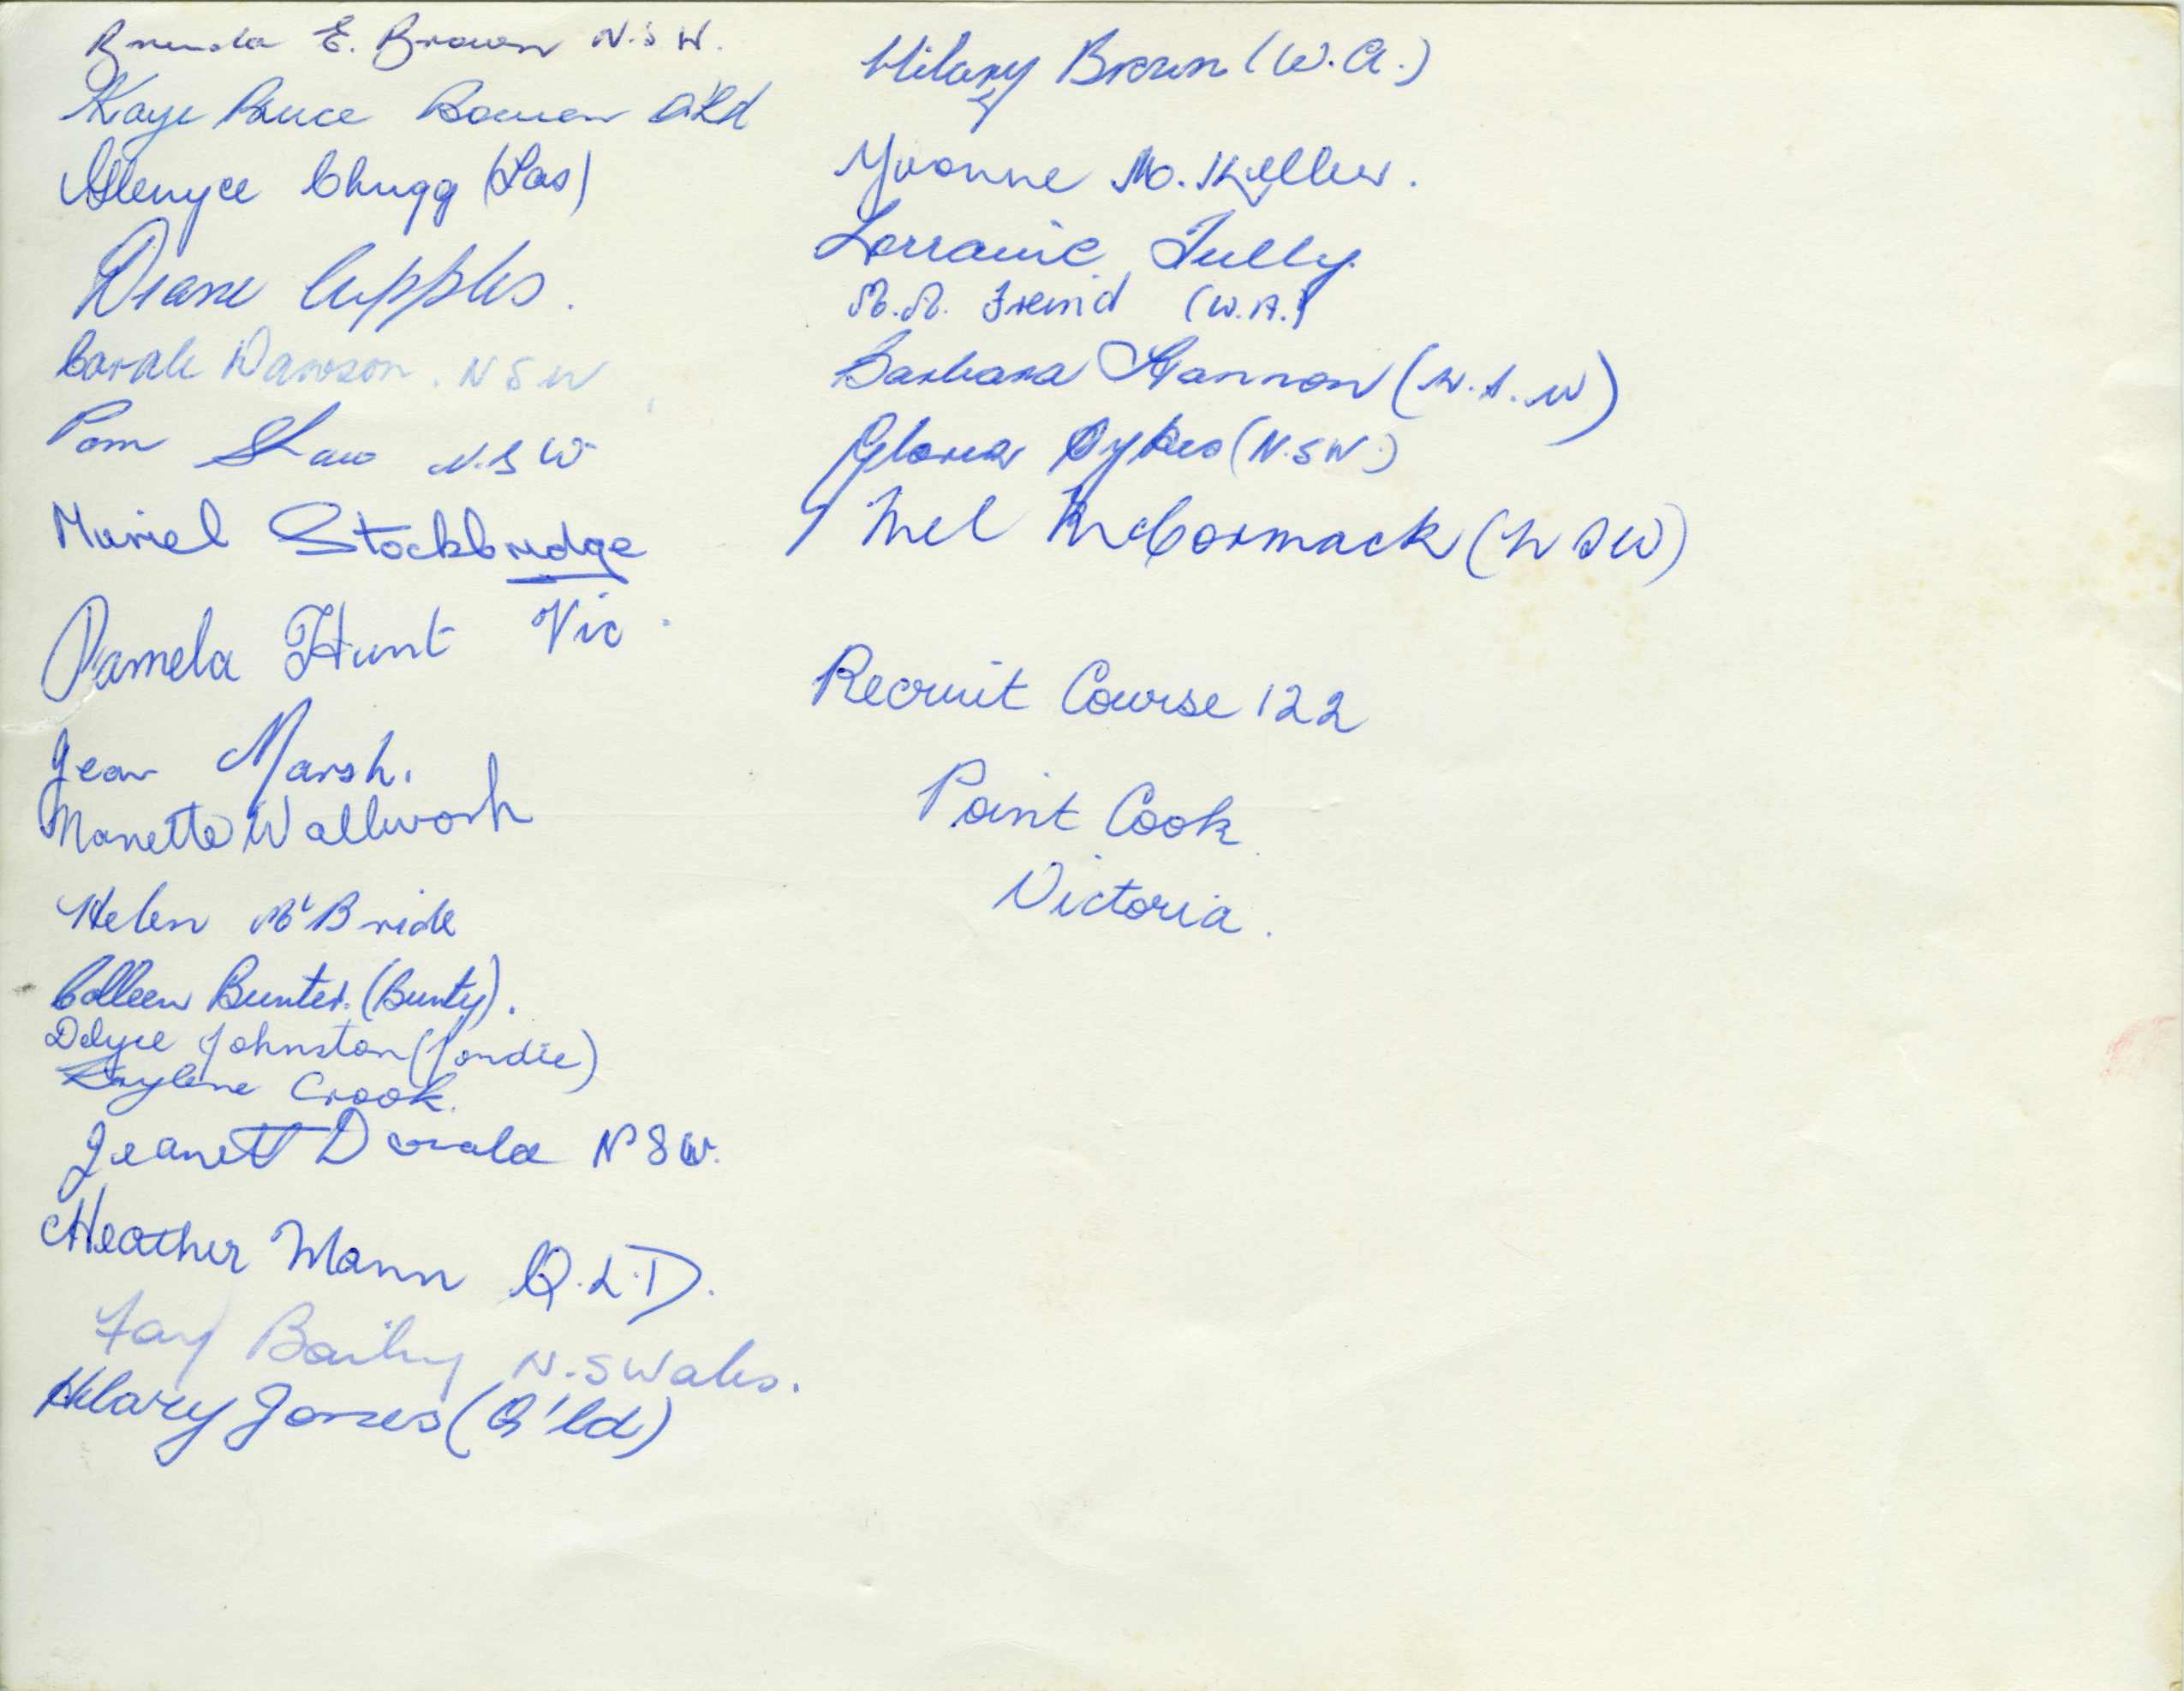 Brenda E. Brown N.S.W.
Kaye Bowen Q'ld
Glenyce Chugg (Tas)
Diane Cupples.
Carole Dawson. NSW
Pam Shaw N.S.W
Muriel Stockbridge
Pamela Hunt Vic.
Jean Marsh.
Nanette Wallwork
Helen McBride
Colleen Bunter. (Bunty).
Delyce Johnston (Jondie)
Raylene Crook.
Jeanett NSW.
Heather Mann Q.L.D.
Fay Bailey N.S Wales.
Hilary Jones (Q'ld)
Hilary Brown (W.A.)
Yvonne M. Keller.
Lorraine Tully.
M.M. Freind (W.A.)
Barbara Gannon (N.S.W)
Gloria Dykes (N.S.W.)
Mel McCormack (NSW)
Recruit Course 122
Point Cook
Victoria.